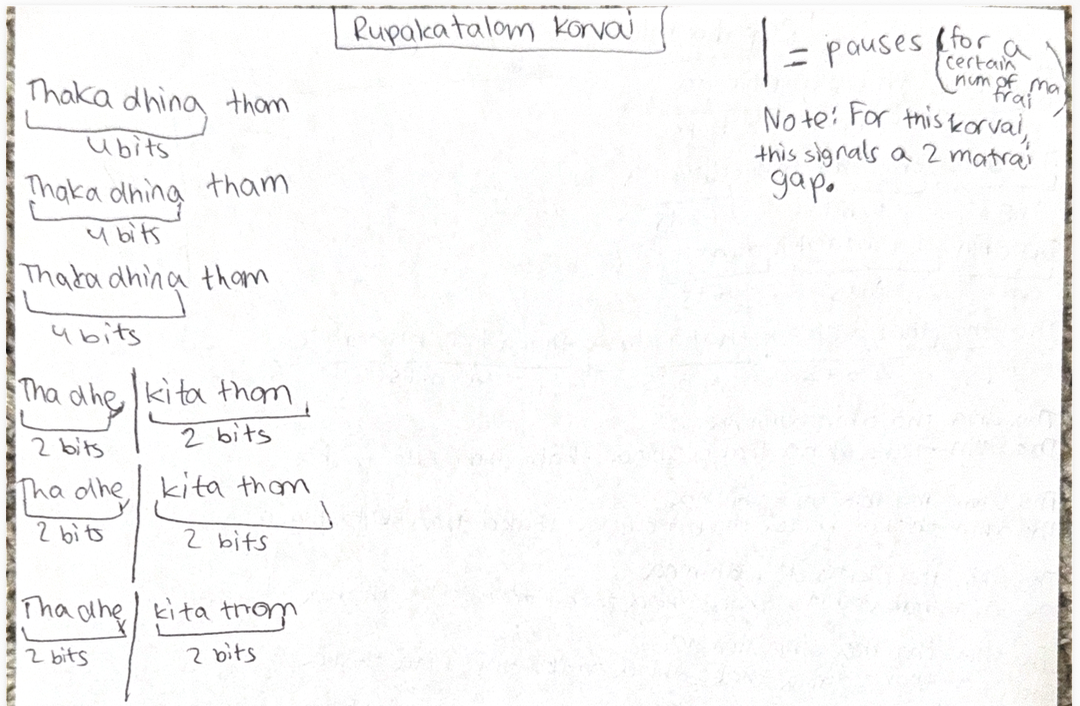 Rupakatalam Korvai
| = pauses (for a
certain
num of ma
trai)
Note: For this korvai,
this signals a 2 matrai
gap.
Thaka dhina tham
4 bits
Thaka dhina tham
4 bits
Thaka dhina tham
4 bits
Tha dhe | kita thom
2 bits 2 bits
Tha dhe | kita thom
2 bits 2 bits
Tha dhe | kita thom
2 bits 2 bits